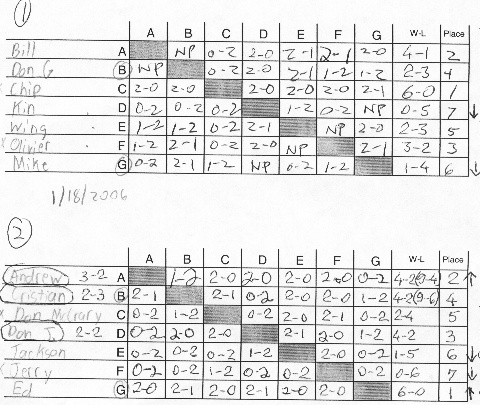 ①
A B C D E F G W-L Place
Bill A NP 0-2 2-0 2-1 2-1 2-0 4-1 2
Don G B NP 0-2 2-0 2-1 1-2 1-2 2-3 4
Chip C 2-0 2-0 2-0 2-0 2-0 2-1 6-0 1
Kin D 0-2 0-2 0-2 1-2 0-2 NP 0-5 7 ↓
Wing E 1-2 1-2 0-2 2-1 NP 2-0 2-3 5
Olivier F 1-2 2-1 0-2 2-0 NP 2-1 3-2 3
Mike G 0-2 2-1 1-2 NP 0-2 1-2 1-4 6 ↓
1/18/2006
②
A B C D E F G W-L Place
Andrew 3-2 A 1-2 2-0 2-0 2-0 2-0 0-2 4-2(9-4) 2 ↑
Cristian 2-3 B 2-1 2-1 0-2 2-0 2-0 1-2 4-2(9-6) 4
Don McCrary C 0-2 1-2 0-2 2-0 2-1 0-2 2-4 5
Don I. 2-2 D 0-2 2-0 2-0 2-1 2-0 1-2 4-2 3
Jackson E 0-2 0-2 0-2 1-2 2-0 0-2 1-5 6 ↓
Jerry F 0-2 0-2 1-2 0-2 0-2 0-2 0-6 7 ↓
Ed G 2-0 2-1 2-0 2-1 2-0 2-0 6-0 1 ↑